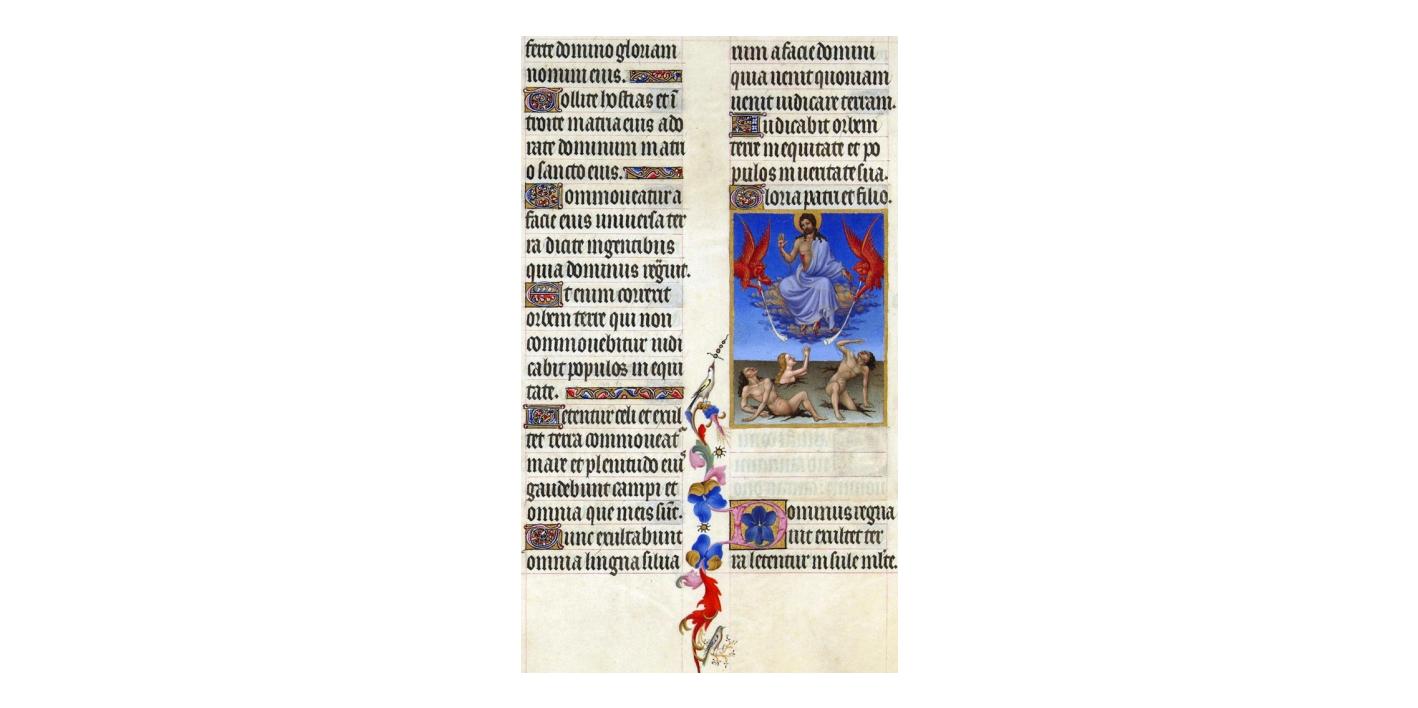 ferte domino gloriam
nomini eius.
Tollite hostias et ī
troite in atria eius ado
rate dominum in atri
o sancto eius.
Commoueatur a
facie eius uniuersa ter
ra dicite in gentibus
quia dominus regnuit.
Et enim correxit
orbem terre qui non
commouebitur iudi
cabit populos in equi
tate.
Letentur celi et exul
tet terra commoueat᷑
mare et plenitudo eius
gaudebunt campi et
omnia que in eis sūt.
Tunc exultabunt
omnia lingna silua
rum a facie domini
quia uenit quoniam
uenit iudicare terram.
Iudicabit orbem
terre in equitate et po
pulos in ueritate sua.
Gloria patri et filio.
Dominus regna
uit exultet ter
ra letentur insule mlte.